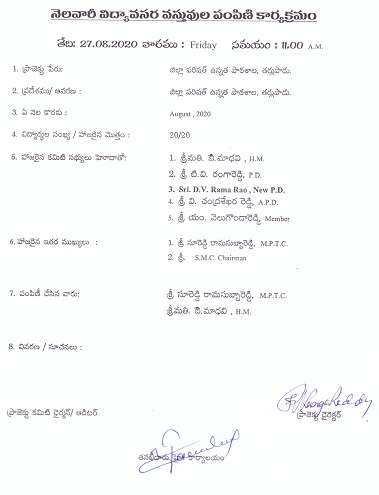 నెలవారీ విద్యావసర వస్తువుల పంపిణి కార్యక్రమం
తేది: 27.08.2020 వారము : Friday సమయం : 11.00 A.M.
1. ప్రాజెక్టు పేరు: జిల్లా పరిషత్ ఉన్నత పాఠశాల, తర్లుపాడు.
2. ప్రదేశము/ ఆవరణ : జిల్లా పరిషత్ ఉన్నత పాఠశాల, తర్లుపాడు.
3. ఏ నెల కొరకు : August , 2020
4. విద్యార్థుల సంఖ్య / హాజరైన మొత్తం: 20/20
5. హాజరైన కమిటి సభ్యులు హెూదాతో: 1. శ్రీమతి. బి.మాధవి , H.M.
2. శ్రీ టి.వి. రంగారెడ్డి, P.D.
3. Sri. D.V. Rama Rao , New P.D.
4. శ్రీ వి. చంద్రశేఖర రెడ్డి, A.P.D.
5. శ్రీ యం. వెలుగొండారెడ్డి, Member
6. హాజరైన ఇతర ముఖ్యులు : 1. శ్రీ సూరెడ్డి రామసుబ్బారెడ్డి, M.P.T.C.
2. శ్రీ. S.M.C. Chairman
7. పంపిణీ చేసిన వారు: శ్రీ సూరెడ్డి రామసుబ్బారెడ్డి, M.P.T.C.
శ్రీమతి. బి.మాధవి , H.M.
8. వివరణ / సూచనలు :
ప్రాజెక్టు కమిటి ఛైర్మన్/ ఆడిటర్ ప్రాజెక్టు డైరెక్టర్
కార్యాలయం